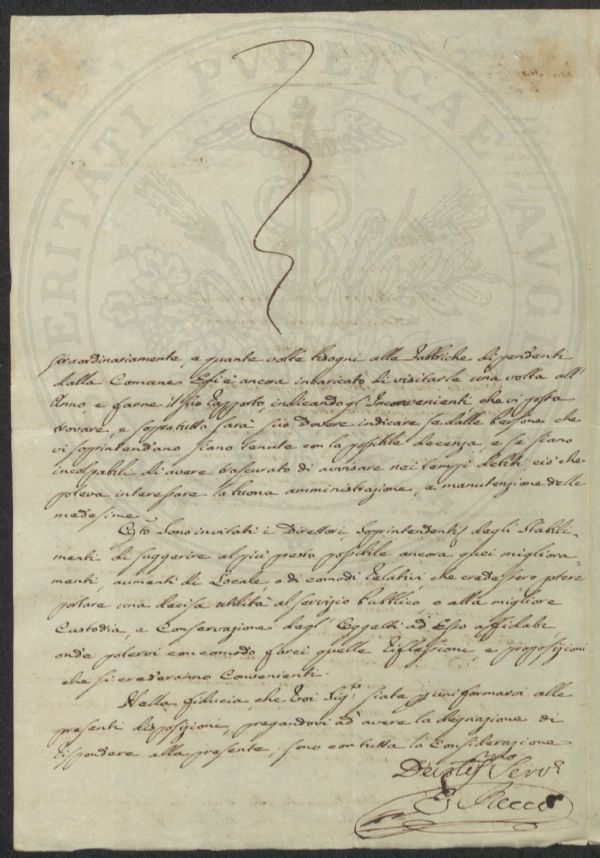 VERITATI PVBLICAE AVGE
straordinariamente, e quante volte bisogni alle Fabbriche dipendenti
dalla Comune Egli è ancora incaricato di visitarle una volta all'
Anno, e farne il suo Rapporto, indicando gl'Inconvenienti, che vi possa
trovare, e sopratutto sarà suo Dovere indicare se dalle persone, che
vi soprintendano siano tenute con la possibile decenza, e se siano
incolpabili di avere trascurato di avvisare nei tempi debiti, ciò che
poteva interessare la buona amministrazione, e manutenzione delle
medesime.
Sono invitati i Direttori, Soprintendenti degli Stabili-
menti di suggerire al più presto possibile ancora quei migliora-
menti, aumenti di Locale o di comodi relativi, che credessero potere
portare una decisa utilità al servizio Pubblico, o alla migliore
Custodia, e Conservazione degl'Oggetti ad Esso affidati,
onde potervi con comodo farci quelle Riflessioni, e proposizioni
che si crederanno Convenienti.
Nella fiducia che Voi Sig.re siate p uniformarvi alle
presenti disposizioni, pregandovi ad avere la degnazione di
rispondere alla presente, sono con tutta la Considerazione
Servo